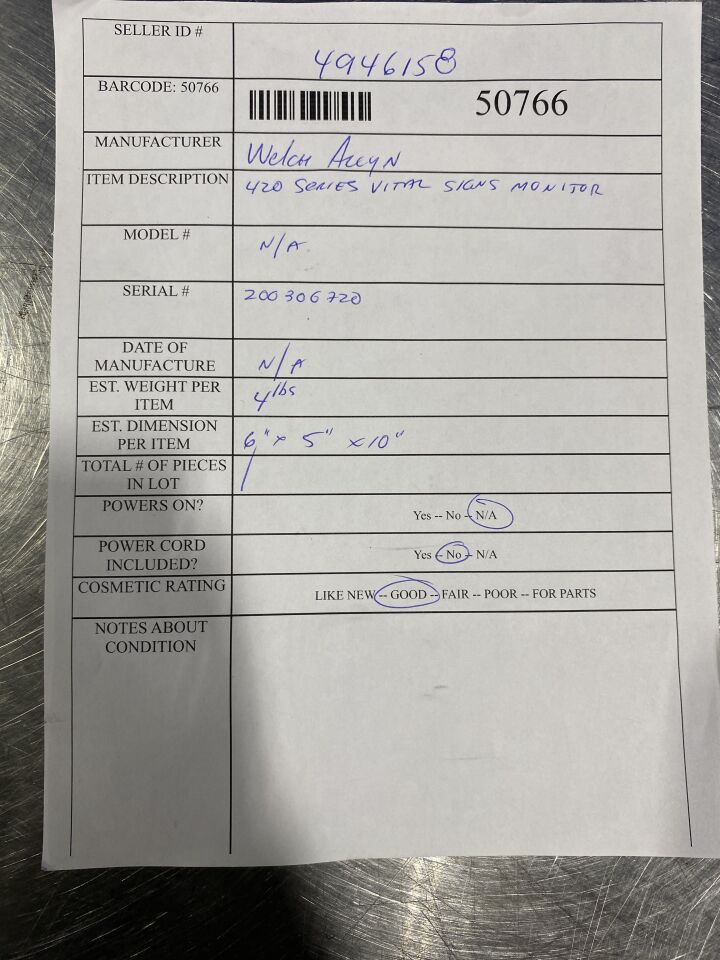 SELLER ID #
4946158
BARCODE: 50766
50766
MANUFACTURER
Welch Allyn
ITEM DESCRIPTION
420 SERIES VITAL SIGNS MONITOR
MODEL #
N/A
SERIAL #
200306720
DATE OF
MANUFACTURE
N/A
EST. WEIGHT PER
ITEM
4 lbs
EST. DIMENSION
PER ITEM
6" x 5" x 10"
TOTAL # OF PIECES
IN LOT
1
POWERS ON?
Yes -- No -- N/A
POWER CORD
INCLUDED?
Yes -- No -- N/A
COSMETIC RATING
LIKE NEW -- GOOD -- FAIR -- POOR -- FOR PARTS
NOTES ABOUT
CONDITION